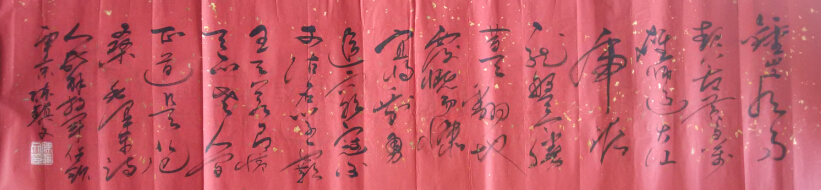 鍾山风雨
起苍黄百萬
雄师过大江
虎踞
龍盤今勝
昔天翻地
覆慨而慷
宜将剩勇
追窮寇不
可沽名学霸
王天若有情
天亦老人間
正道是滄
桑毛澤東詩
人民解放軍占領
南京